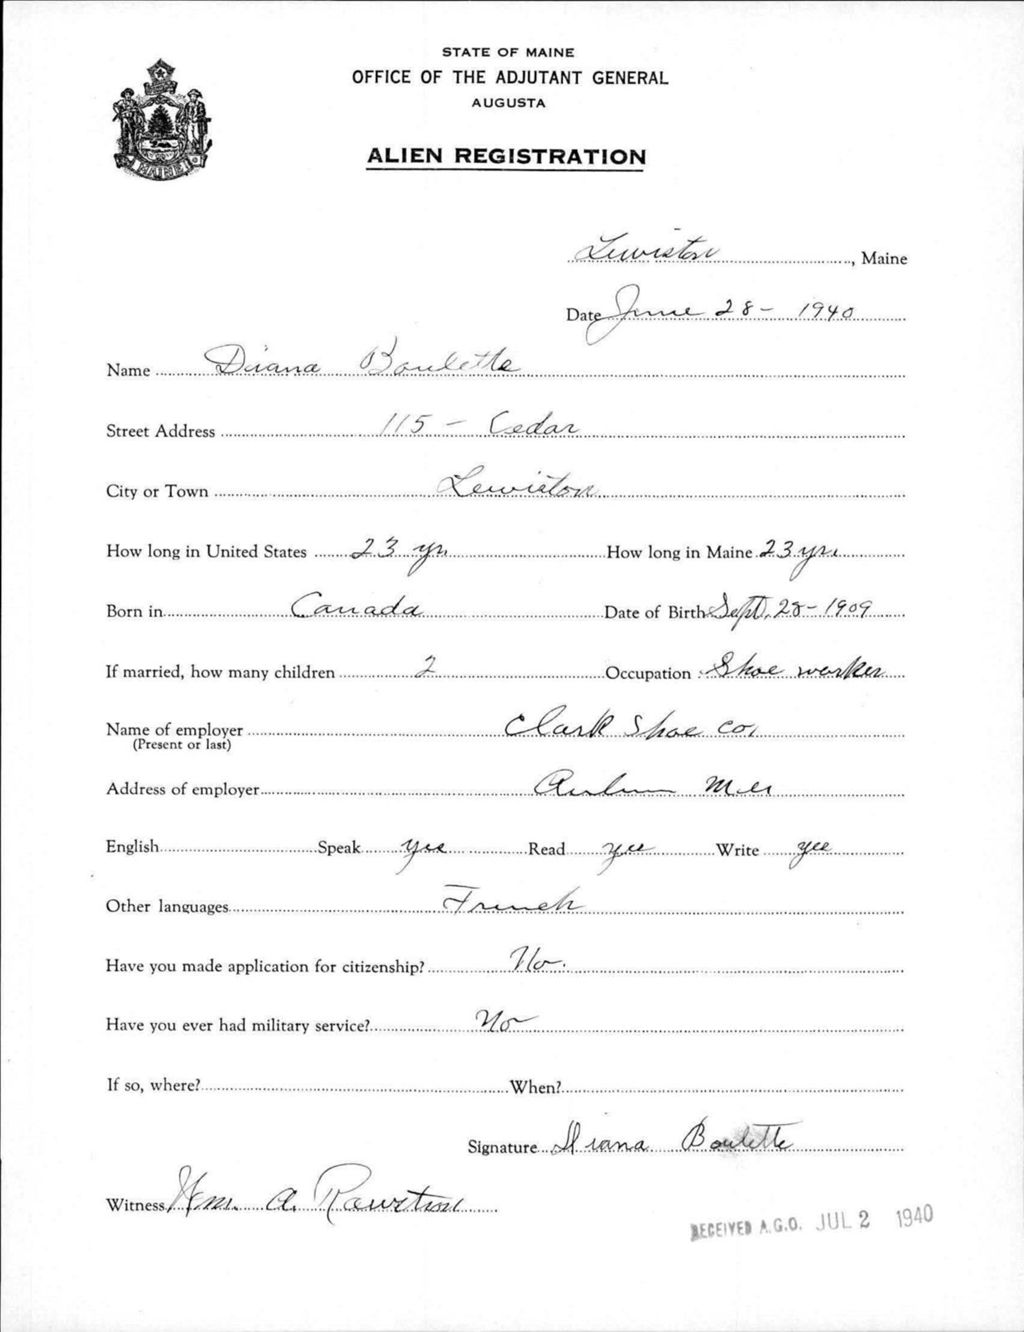 STATE OF MAINE
OFFICE OF THE ADJUTANT GENERAL
AUGUSTA
ALIEN REGISTRATION
MAINE
Lewiston, Maine
Date June 28 - 1940
Name Diana Boulette
Street Address 115 - Cedar
City or Town Lewiston
How long in United States 23 yrs How long in Maine 23 yrs
Born in Canada Date of Birth Sept. 28 - 1909
If married, how many children 2 Occupation Shoe worker
Name of employer Clark Shoe Co.
(Present or last)
Address of employer Auburn Me
English Speak yes Read yes Write yes
Other languages French
Have you made application for citizenship? No.
Have you ever had military service? No
If so, where? When?
Signature Diana Boulette
Witness Wm. A.
RECEIVED A.G.O. JUL 2 1940